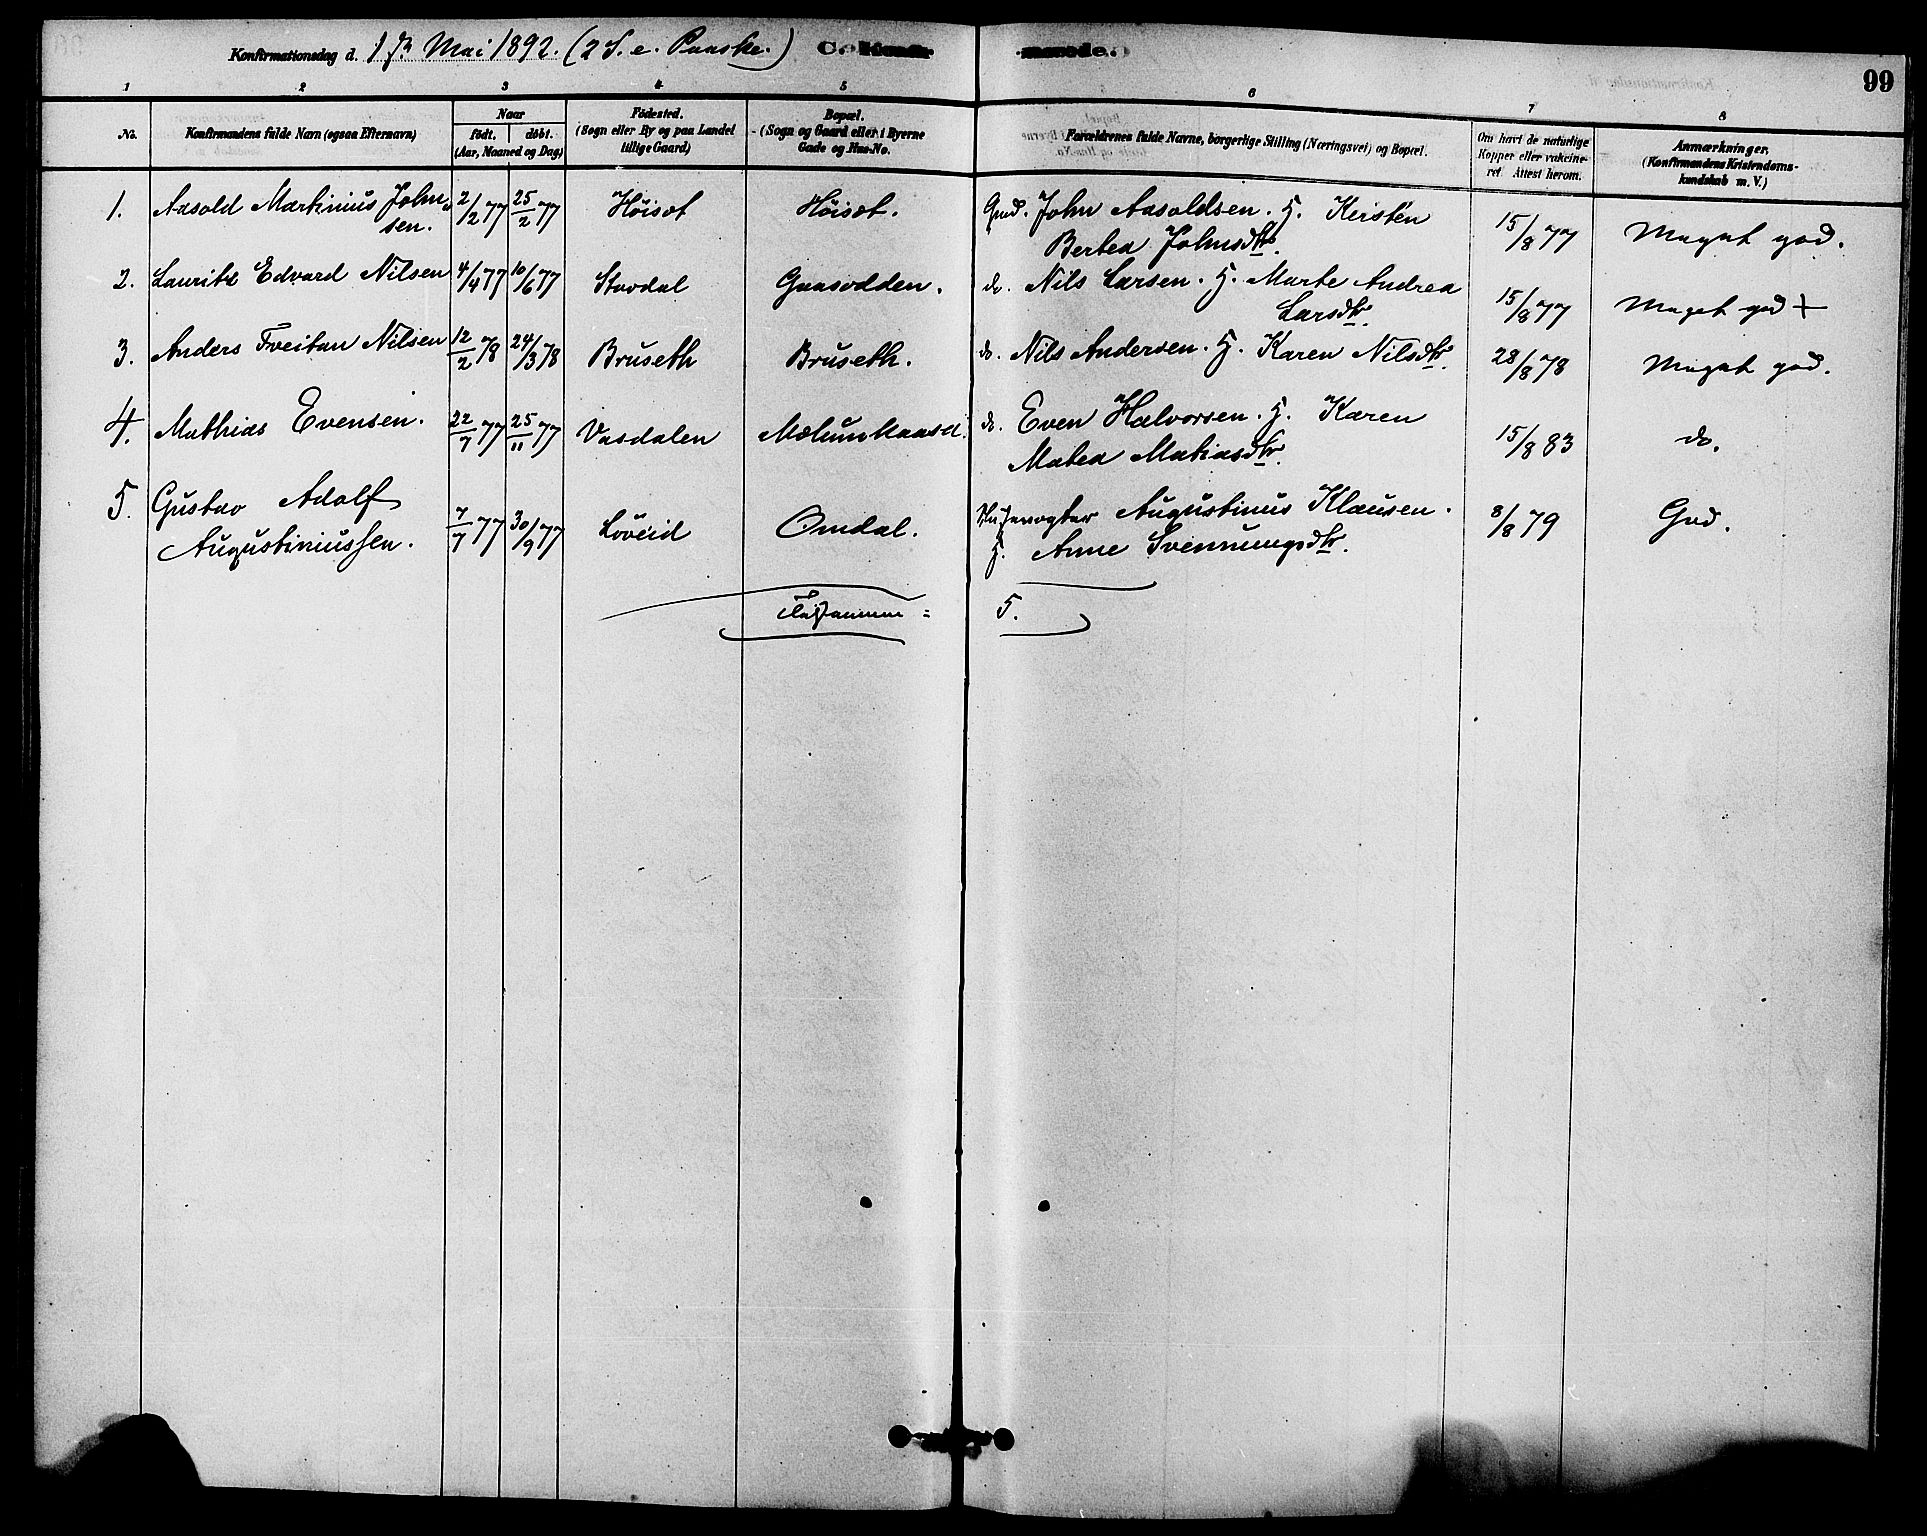 Konfirmationsdag d. 1ste Mai 1892. (2 S. e. Paaske.)
99
1 2 3 4 5 6 7 8
No.
Konfirmandens fulde Navn (ogsaa Efternavn)
Naar
födt. döbt.
(Aar, Maaned og Dag)
Födested.
(Sogn eller By og paa Landet
tillige Gaard)
Bopæl.
(Sogn og Gaard eller i Byerne
Gade og Hus-No.
Forældrenes fulde Navne, borgerlige Stilling (Næringsvei) og Bopæl.
Om havt de naturlige
Kopper eller vakcine-
ret. Attest herom.
Anmærkninger.
(Konfirmandens Kristendoms-
kundskab m. V.)
1. Aasold Martinius John- 2/2 77 25/2 77 Höisæt Höisæt. Gmd. John Aasoldsen. H. Kirsten 15/8 77 Meget god.
sen. Bertea Johnsdtr.
2. Lauritz Edvard Nilsen 4/4 77 10/6 77 Stavdal Gaasodden. do. Nils Larsen. H. Marte Andrea 15/8 77 Meget god +
Larsdtr.
3. Anders Freitan Nilsen 12/2 78 24/3 78 Bruseth Bruseth. do. Nils Andersen. H. Karen Nilsdtr. 28/8 78 Meget god.
4. Mathias Evensen. 22/7 77 25/11 77 Vasdalen do. Even Halvorsen. H. Karen 15/8 83 do.
Matea Matiasdtr.
5. Gustav Adolf 7/7 77 30/9 77 Lövéid Omdal. Augustinus Klausen. 8/8 79 God.
Augustiniussen. H. Anne Svennungsdtr.
Tilsammen = 5.